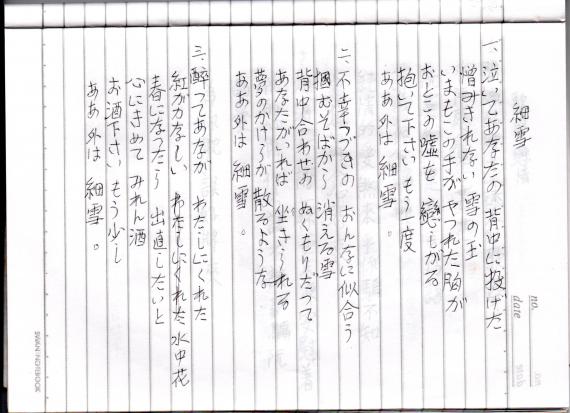 no.
date
細雪
一、泣いてあなたの 背中に投げた
憎みきれない 雪の玉
いまもこの手が やつれた胸が
おとこの嘘を 戀しがる
抱いて下さい もう一度
ああ 外は 細雪。
二、不幸つづきの おんなに似合う
掴むそばから 消える雪
背中合わせの ぬくもりだって
あなたがいれば 坐きられる
夢のかけらが 散るような
ああ 外は 細雪。
三、醉ってあなが わたしにくれた
紅がかなしい わたしにくれた 水中花
春になったら 出直したいと
心にきめて みれん酒
お酒下さい もう少し
ああ 外は 細雪。
SWAN NOTEBOOK